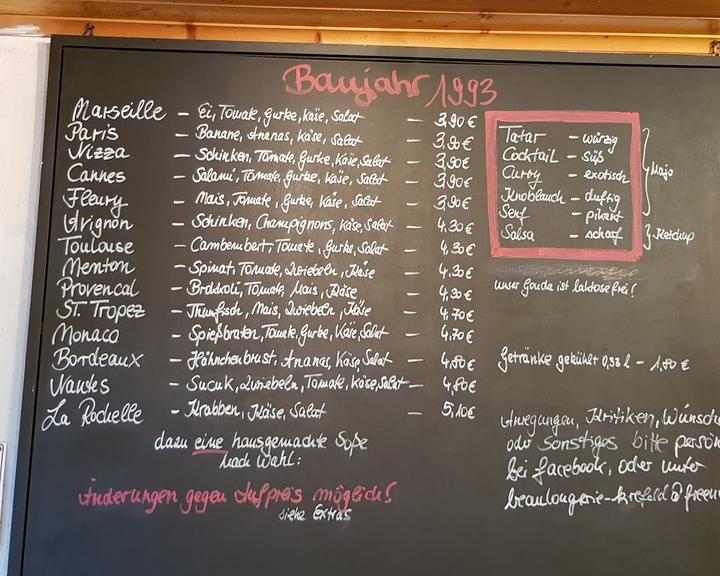 Baujahr 1993
Marseille – Ei, Tomate, Gurke, Käse, Salat – 3,90 €
Paris – Banane, Ananas, Käse, Salat – 3,90 €
Nizza – Schinken, Tomate, Gurke, Käse, Salat – 3,90 €
Cannes – Salami, Tomate, Gurke, Käse, Salat – 3,90 €
Fleury – Mais, Tomate, Gurke, Käse, Salat – 3,90 €
Avignon – Schinken, Champignons, Käse, Salat – 4,30 €
Toulouse – Cambembert, Tomate, Gurke, Salat – 4,30 €
Menton – Spinat, Tomate, Zwiebeln, Käse – 4,30 €
Provencal – Brokkoli, Tomate, Mais, Käse – 4,30 €
ST. Tropez – Thunfisch, Mais, Zwiebeln, Käse – 4,70 €
Monaco – Spießbraten, Tomate, Gurke, Käse, Salat – 4,70 €
Bordeaux – Hähnchenbrust, Ananas, Käse, Salat – 4,80 €
Nantes – Sucuk, Zwiebeln, Tomate, Käse, Salat – 4,80 €
La Rochelle – Krabben, Käse, Salat – 5,10 €
dazu eine hausgemachte Soße
nach Wahl:
Änderungen gegen Aufpreis möglich!
siehe Extras
Tatar – würzig
Cocktail – süß
Curry – exotisch
Knoblauch – duftig
Senf – pikant
Salsa – scharf
Majo
Ketchup
unser Gouda ist laktosefrei!
Getränke gekühlt 0,33 l – 1,80 €
Anregungen, Kritiken, Wünsche
oder Sonstiges bitte persön
bei facebook, oder unter
beaulongerie-krefeld@freen